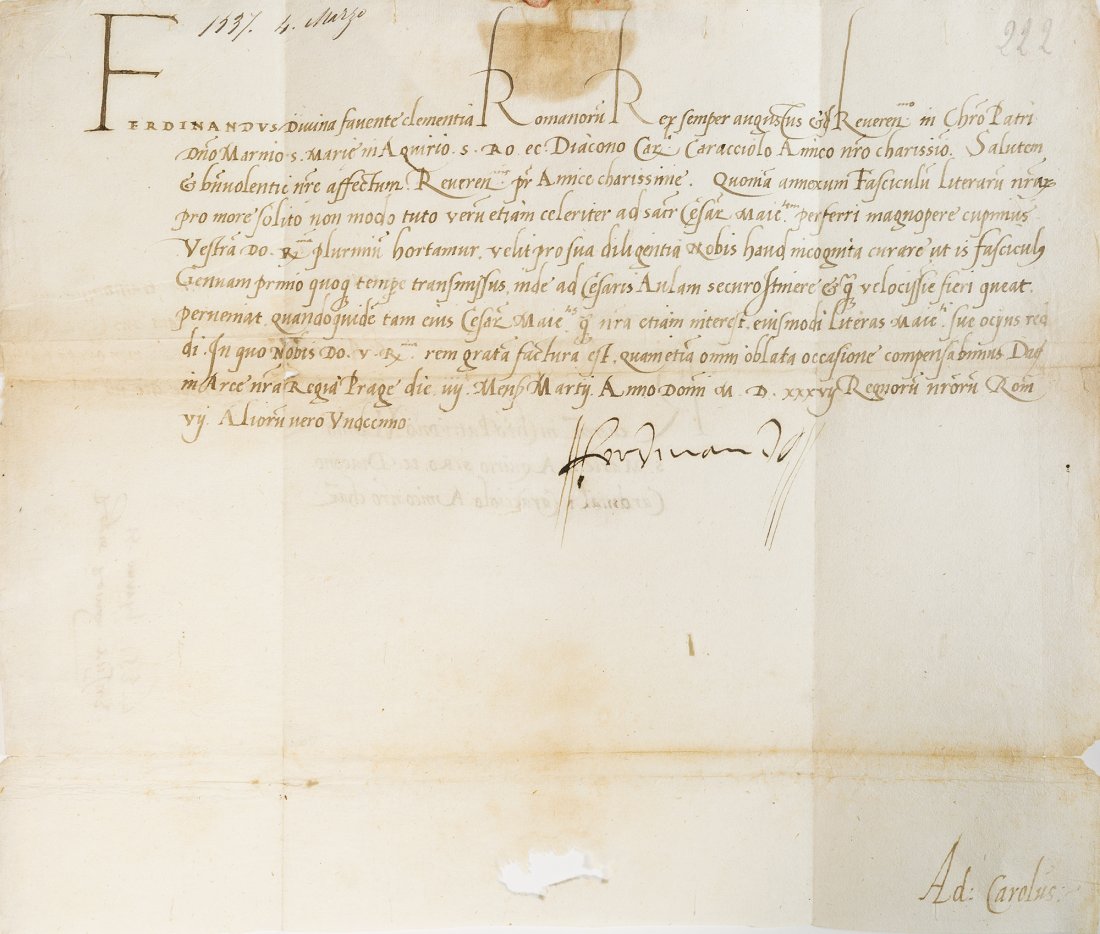 1537. 4. Marzo
222
FERDINANDVS Divina favente clementia Romanorū Rex semper augustus &c̄ Reveren^mo in Chrō Patri
Dnō Marinio S. Marie in Aquirio. S. RO. ec. Diacono Car. Caracciolo Amico nrō charissiō. Salutem
& bn̄volentie nrē affectum. Reveren^me pr̄ Amice charissime. Quoniā annexum Fasciculū literarū nrār
pro more solito non modo tuto verū etiam celeriter ad sacr̄ Cesar̄ Maie^tem perferri magnopere cupimus
Vestrā Do. R^mā plurimū hortamur, velit pro sua diligentiā Nobis haud incognita curare ut is fasciculus
Genuam primo quoq tempe transmissus, inde ad Cesaris Aulam securo Itinere & q̄ velocissie fieri queat,
perveniat, quandoquidē tam eius Cesar̄ Maie^tis q̄ nrā etiam interest, eiusmodi literas Maie^ti sue ocius red
di. In quo Nobis Do. V. R^ma. rem gratā factura est, quam etiā omni oblata occasione compensabimus. Dat̄
in Arce nrā Regiā Prage die iiij. Mens̄ Martij. Anno Domī M. D. xxxvij Regnorū nrōrū Rom̄
vij. Aliorū vero Undecimo
Ferdinandus
Ad: Carolus.